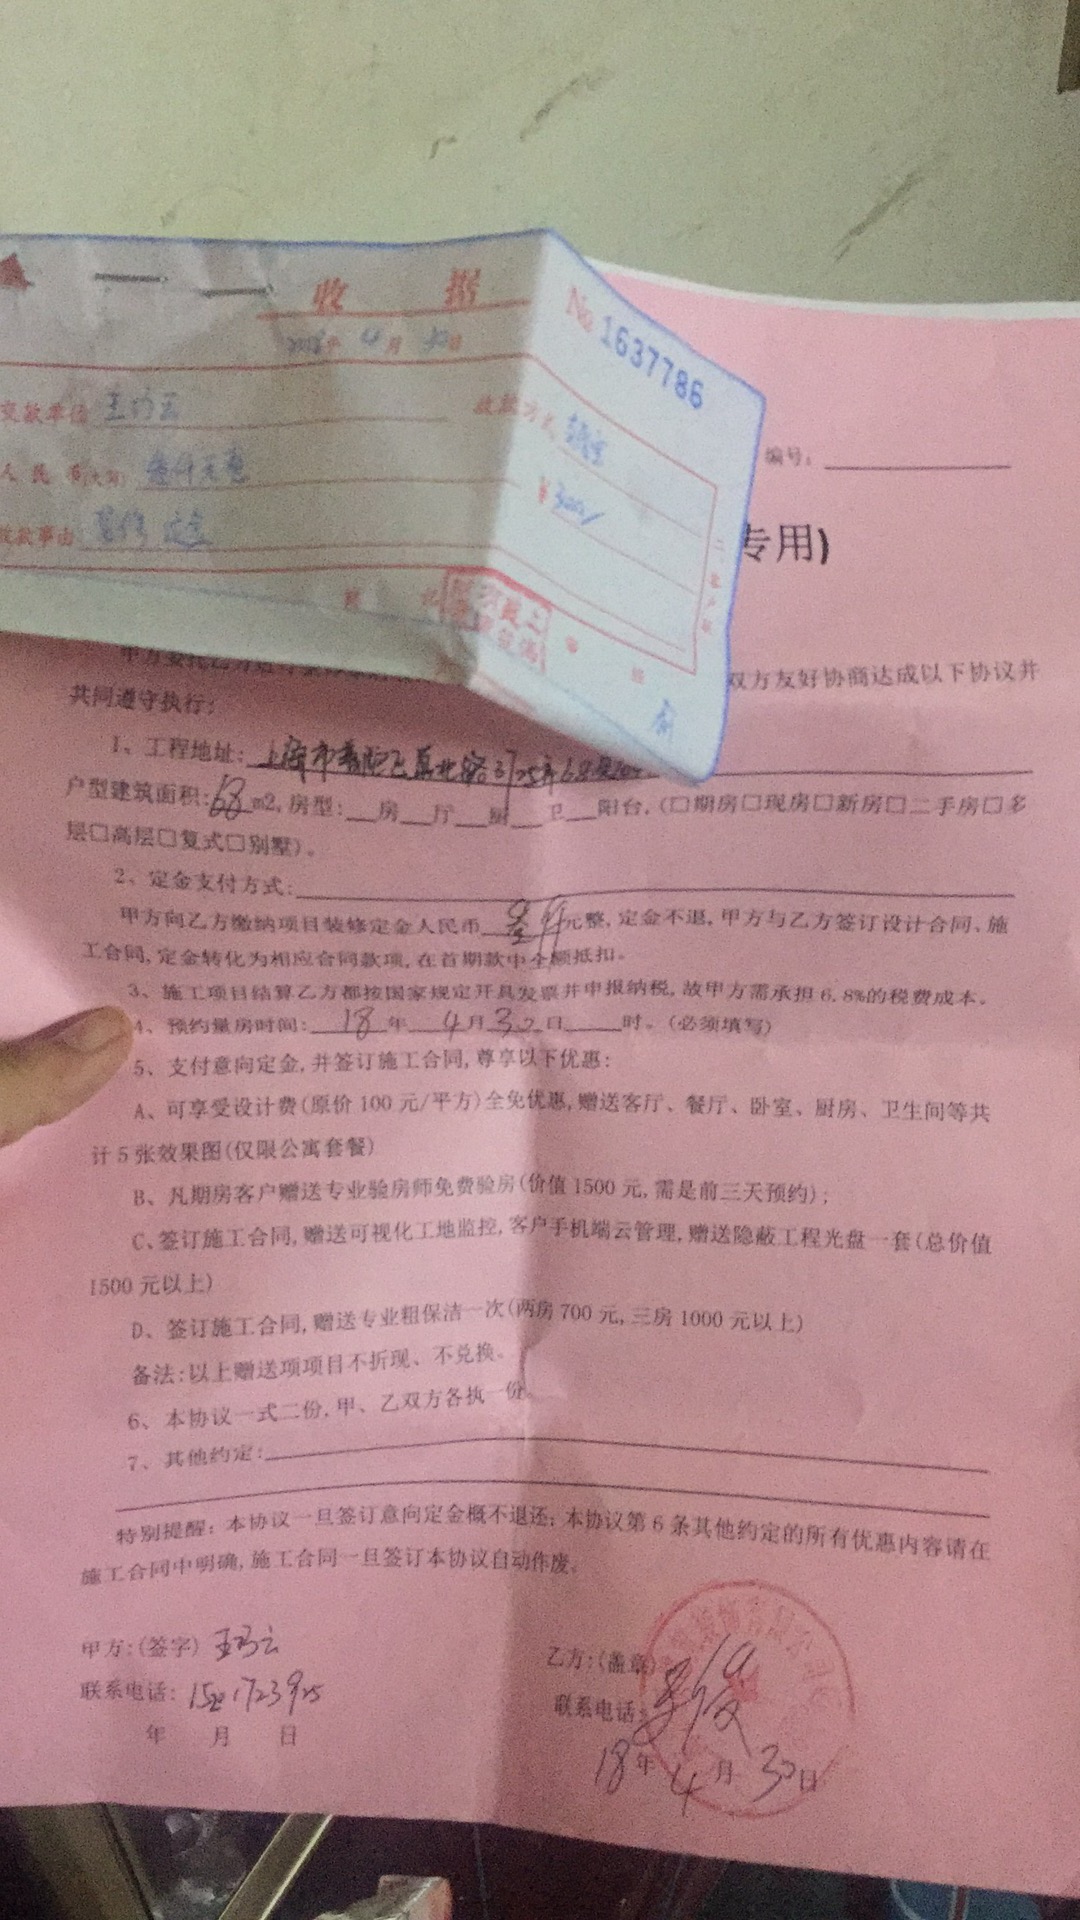 收 据
No 1637786
年 4月 30日
交款单位 收款方式
人民币(大写) 叁仟元
¥3000
收款事由 装修定金
编号:
专用)
双方友好协商达成以下协议并
共同遵守执行:
1、工程地址: 上海市普陀区真北路
户型建筑面积: 68 m2,房型: 房 厅 厨 卫 阳台,(□期房□现房□新房□二手房□多
层□高层□复式□别墅)。
2、定金支付方式:
甲方向乙方缴纳项目装修定金人民币 叁仟 元整,定金不退,甲方与乙方签订设计合同、施
工合同,定金转化为相应合同款项,在首期款中全额抵扣。
3、施工项目结算乙方都按国家规定开具发票并申报纳税,故甲方需承担6.8%的税费成本。
4、预约量房时间: 18 年 4月 30日 时。(必须填写)
5、支付意向定金,并签订施工合同,尊享以下优惠:
A、可享受设计费(原价100元/平方)全免优惠,赠送客厅、餐厅、卧室、厨房、卫生间等共
计5张效果图(仅限公寓套餐)
B、凡期房客户赠送专业验房师免费验房(价值1500元,需是前三天预约);
C、签订施工合同,赠送可视化工地监控,客户手机端云管理,赠送隐蔽工程光盘一套(总价值
1500元以上)
D、签订施工合同,赠送专业粗保洁一次(两房700元,三房1000元以上)
备法:以上赠送项项目不折现、不兑换。
6、本协议一式二份,甲、乙双方各执一份。
7、其他约定:
特别提醒:本协议一旦签订意向定金概不退还;本协议第6条其他约定的所有优惠内容请在
施工合同中明确,施工合同一旦签订本协议自动作废。
甲方:(签字)
乙方:(盖章)
联系电话:
联系电话:
年 月 日
18年 4月 30日